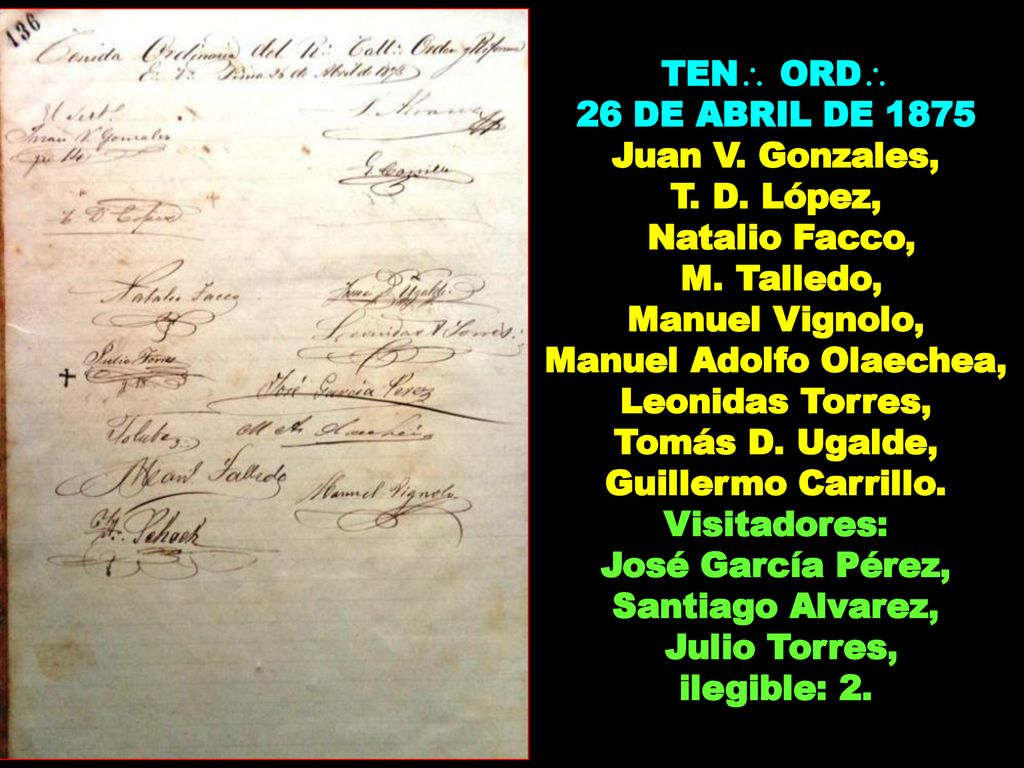 136
Tenida Ordinaria del R∴ Tall∴ Orden y Reforma
26 de Abril de 1875
Juan V. Gonzales
S. Alvarez
G. Carrillo
T. D. López
Natalio Facco
Tomás D. Ugalde
Leonidas Torres
Julio Torres
g. 18
José García Pérez
M. A. Olaechea
Man.l Talledo
Manuel Vignolo
Schock
TEN∴ ORD∴
26 DE ABRIL DE 1875
Juan V. Gonzales,
T. D. López,
Natalio Facco,
M. Talledo,
Manuel Vignolo,
Manuel Adolfo Olaechea,
Leonidas Torres,
Tomás D. Ugalde,
Guillermo Carrillo.
Visitadores:
José García Pérez,
Santiago Alvarez,
Julio Torres,
ilegible: 2.